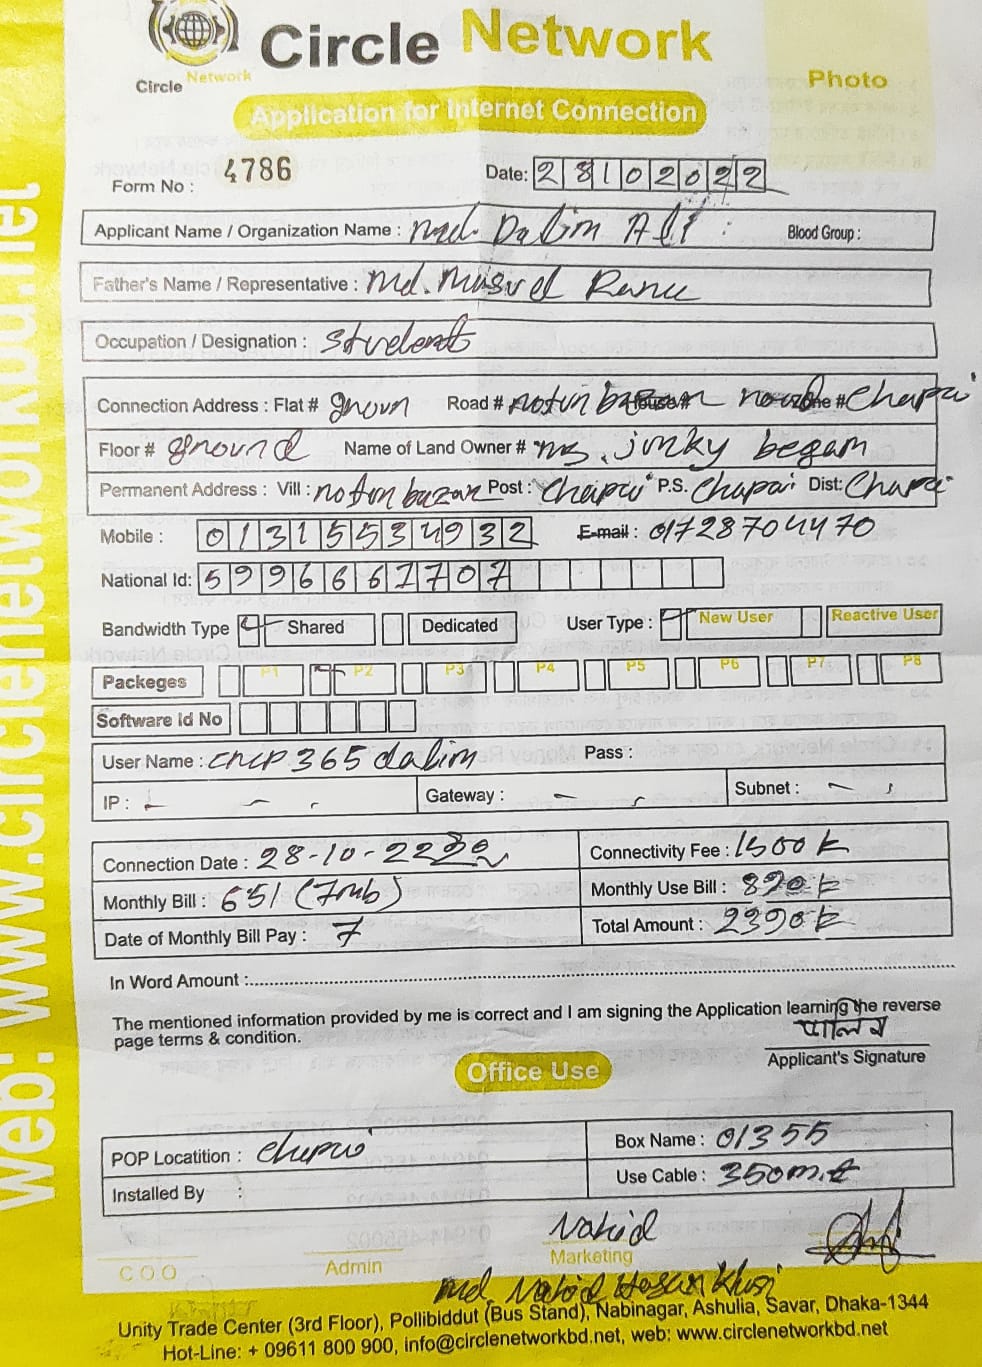 Circle Network
Circle Network
Photo
Application for Internet Connection
Form No : 4786
Date: 28102022
Applicant Name / Organization Name : Md. Dalim Ali
Blood Group :
Father's Name / Representative : Md. Masud Rana
Occupation / Designation : Student
Connection Address : Flat # Road # notun bazar House # Zone # Chapai
Floor # ground Name of Land Owner # Ms. jinky begam
Permanent Address : Vill : notun bazar Post : Chapai P.S. Chapai Dist: Chapai
Mobile : 01315534932 E-mail : 01728704470
National Id: 5996661707
Bandwidth Type Shared Dedicated User Type : New User Reactive User
Packeges P1 P2 P3 P4 P5 P6 P7 P8
Software Id No
User Name : cncp365dalim Pass :
IP : Gateway : Subnet :
Connection Date : 28-10-22 Connectivity Fee : 1500 k
Monthly Bill : 651 (7mb) Monthly Use Bill :
Date of Monthly Bill Pay : 7 Total Amount :
In Word Amount :
The mentioned information provided by me is correct and I am signing the Application learning the reverse
page terms & condition.
Applicant's Signature
Office Use
POP Locatition : Chapai Box Name : 01355
Installed By : Use Cable : 350m.t
Nahid
C O O Admin Marketing
Md. Nahid Hasan
Unity Trade Center (3rd Floor), Pollibiddut (Bus Stand), Nabinagar, Ashulia, Savar, Dhaka-1344
Hot-Line: + 09611 800 900, info@circlenetworkbd.net, web: www.circlenetworkbd.net
web: www.circlenetworkbd.net